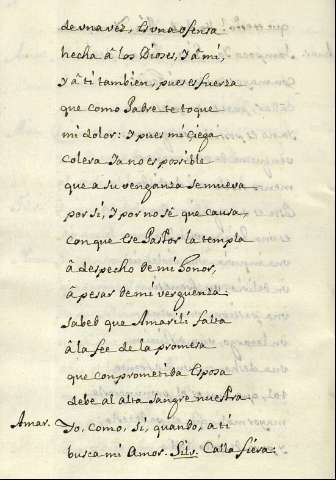 de una vez, Es una ofensa
hecha â los Dioses, y â mi,
y â ti tambien, pues es fuerza
que como Padre te toque
mi dolor: y pues mi çiega
colera ya no es possible
que a su venganza se mueva
por sí, y por no sê que causa,
con que Ese Pastor la templa
â despecho de mi honor,
â pesar de mi verguenza
sabed que Amarili falta
â la fee de la promesa
que con prometida Esposa
debe al alta sangre nuestra.
Amar. Yo, como, si, quando, a ti
busca mi Amor. Silv. Calla fiera: